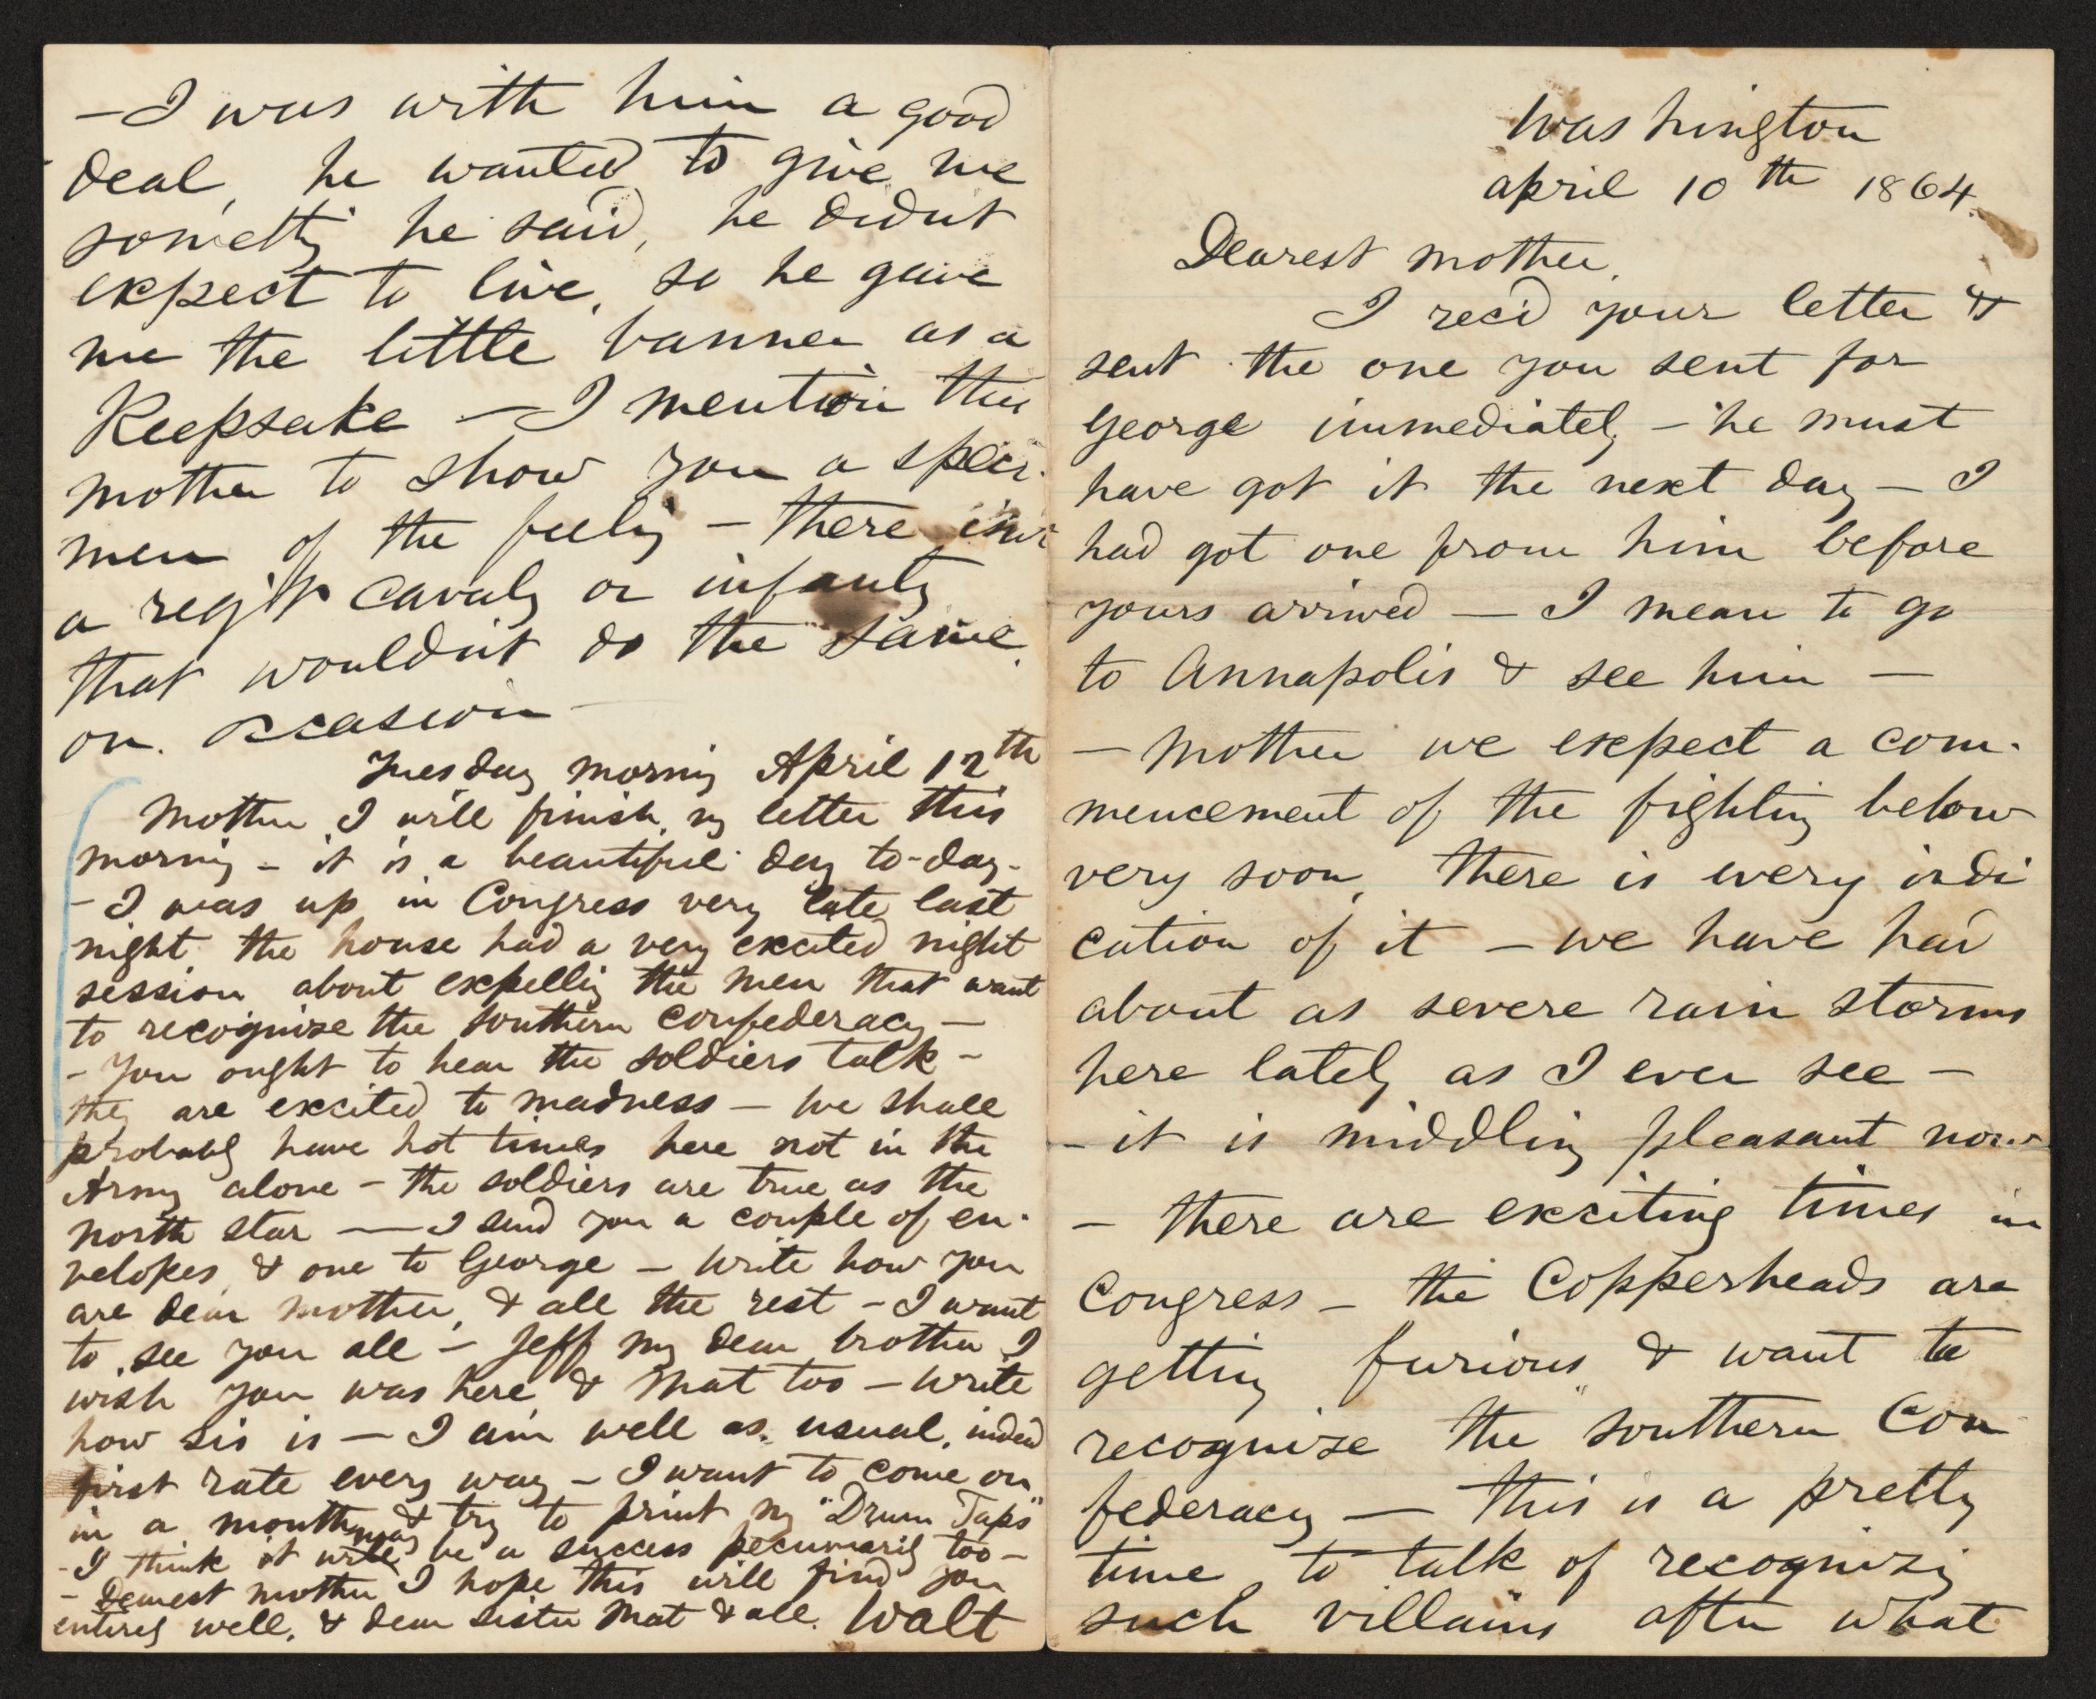 Washington
April 10th 1864.
Dearest mother,
I rec'd your letter &
sent the one you sent for
George immediately – he must
have got it the next day – I
had got one from him before
yours arrived — I mean to go
to Annapolis & see him —
— Mother we expect a com-
mencement of the fighting below
very soon, there is every indi
cation of it – we have had
about as severe rain storms
here lately as I ever see –
– it is middling pleasant now
– there are exciting times in
Congress – the Copperheads are
getting furious, & want to
recognize the "Southern Con
federacy — this is a pretty
time to talk of recognizing
such villains after what
– I was with him a good
deal, he wanted to give me
something he said, he didn't
expect to live, so he gave
me the little banner as a
Keepsake – I mention this
mother to show you a speci-
men of the feeling – there isn't
a reg't cavalry or infantry
that wouldn't do the same,
on occasion –
Tuesday morning April 12th
Mother, I will finish my letter this
morning – it is a beautiful day to-day –
– I was up in Congress very late last
night, the house had a very excited night
session about expelling the men that want
to recognize the Southern confederacy –
– You ought to hear the soldiers talk –
they are excited to madness – we shall
probably have hot times here not in the
Army alone – the soldiers are true as the
north star — I send you a couple of en-
velopes, & one to George – Write how you
are dear mother, & all the rest – I want
to see you all – Jeff my dear brother I
wish you was here, & Mat too – write
how sis is – I am well as usual, indeed
first rate every way – I want to come on
in a month, & try to print my "Drum Taps"
– I think it may be a success pecuniarily too –
– Dearest mother I hope this will find you
entirely well, & dear sister Mat & all. Walt